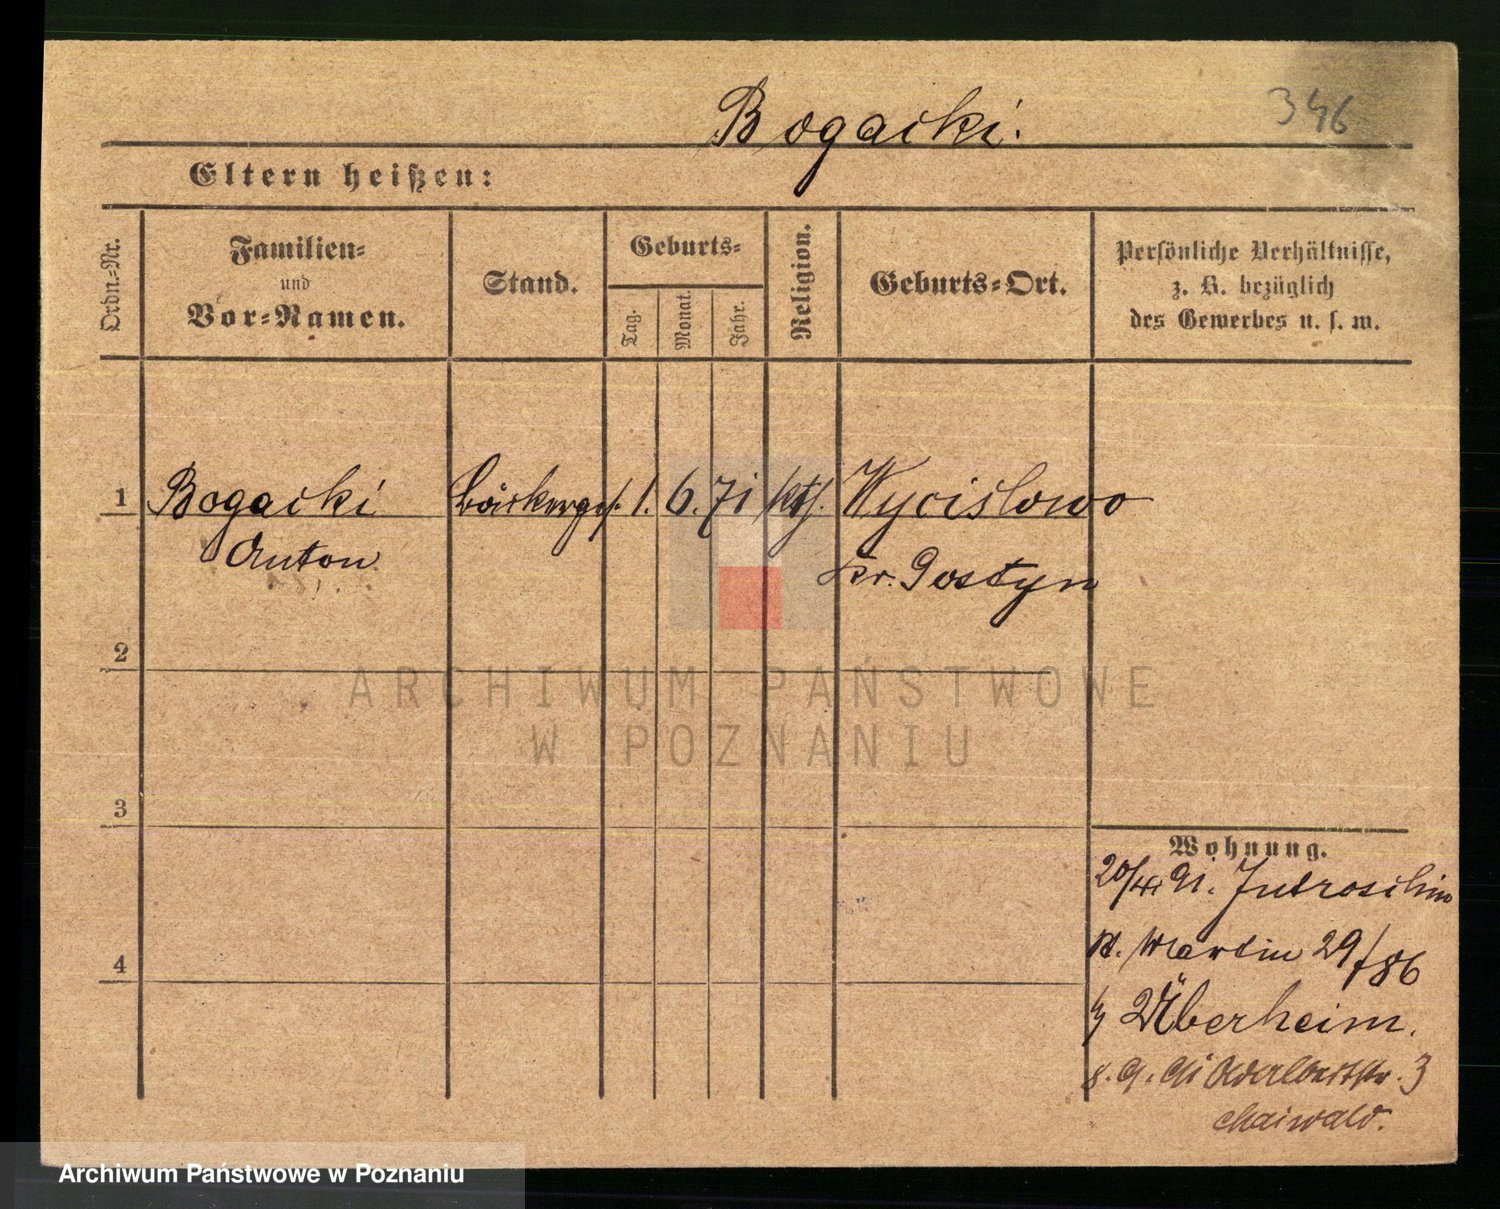 Bogacki.
346
Eltern heißen:
Ordn.-Nr.
Familien-
und
Vor-Namen.
Stand.
Geburts-
Tag.
Monat.
Jahr.
Religion.
Geburts-Ort.
Persönliche Verhältnisse,
z. B. bezüglich
des Gewerbes u. s. w.
1 Bogacki Bäckerges. 1. 6. 71 kth. Wycislowo
Anton Kr. Gostyn
2
3
4
Wohnung.
91. Jutroschin
St. Martin 29/86
b/ Überheim.
8. 9. 91 Adalbertstr. 3
Chaiwald.
ARCHIWUM PAŃSTWOWE
W POZNANIU
Archiwum Państwowe w Poznaniu